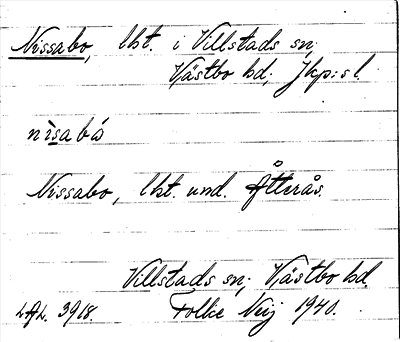 Nissabo, lht. i Villstads sn,
Västbo hd, Jkp:s l.
nìsabó
Nissabo, lht. und. Åtterås.
Villstads sn, Västbo hd.
LAL. 3918. Folke Neij 1940.